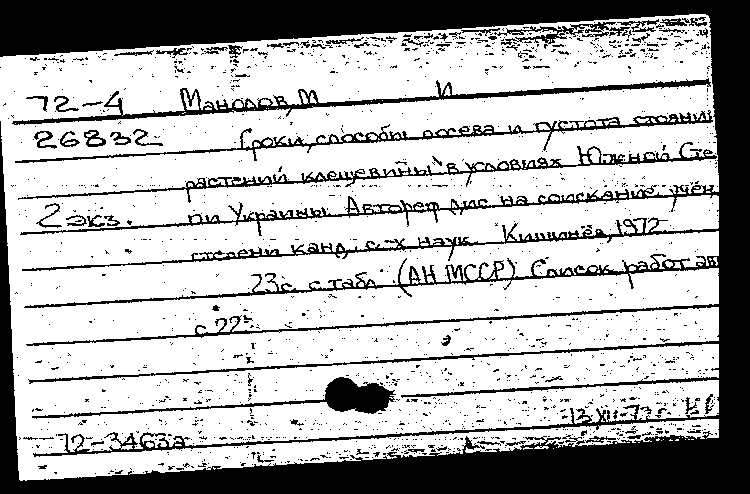 72-4 Манолов, М И
26832 Сроки, способы посева и густота стояния
растений клещевины в условиях Южной Сте
2 экз. пи Украины. Автореф дис на соискание учен
степени канд. с.-х наук. Кишинёв, 1972
23с. с табл. (АН МССР) Список работ ав
с 22
13 XII-77г.
72-3463а